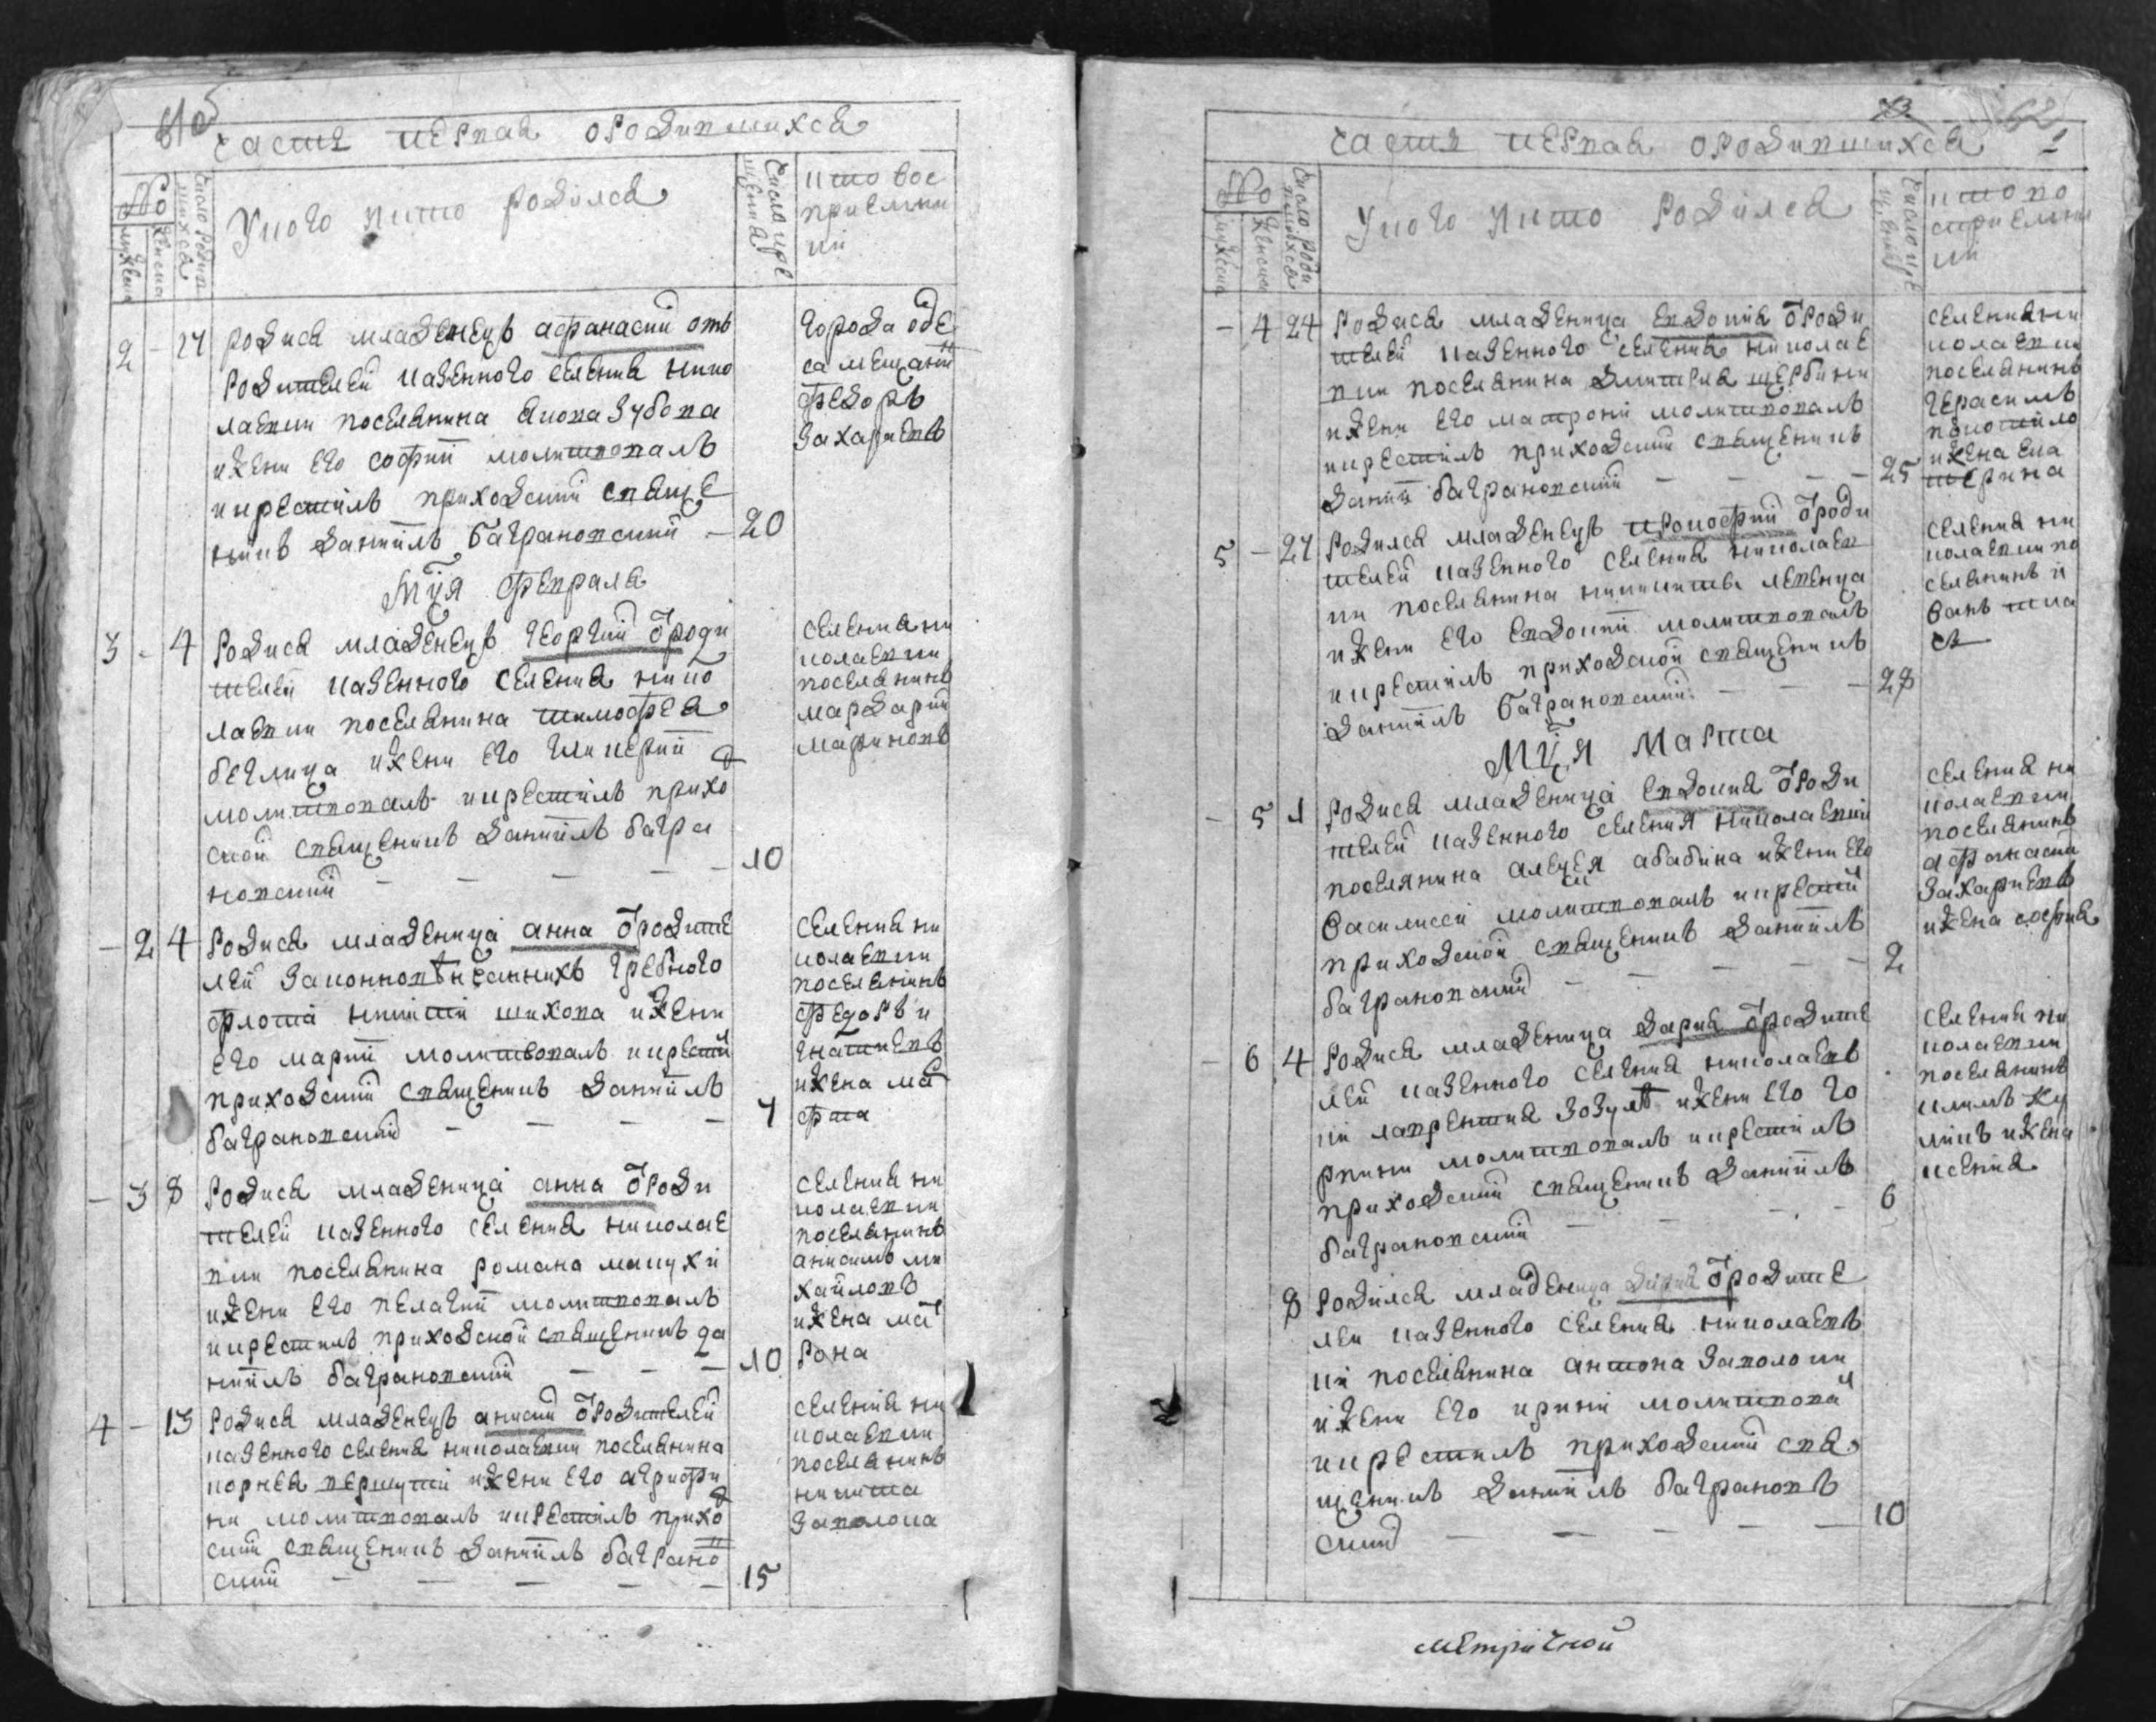 часть перваа ородившихса
№ мужеска
женска
Число родившихса
Укого икто родилса
Число крещениа
кто воспри
емники
2 - 27 Родиса младенецъ афанасий отъ
родителей казенного селениа нико
лаевки поселанина акова зубова
ижени его софии молитвовалъ
икрестилъ приходский сваще
никъ даниилъ баграновский - 20
города оде
са мещани
федоръ
захариевъ
Мця февраля
3 - 4 Родиса младенецъ георгий ѿ роди
телей казенного селениа нико
лаевки поселанина тимофеа
беглица ижени его гликерии
молитвовалъ икрестилъ прихо
ской сващеникъ даниилъ багра
новский - - - - 10
селениа ни
колаевки
поселанинъ
мардарий
мариновъ
- 2 4 Родиса младеница анна ѿ родите
лей законновенчанихъ гребного
флота никити шихова ижени
его марии молитвовалъ икрести
приходский сващеникъ даниилъ
баграновский - - - - 7
селениа ни
колаевки
поселанинъ
федоръ и
гнатиевъ
ижена ма
фта
- 3 8 Родиса младеница анна ѿ роди
телей казенного селениа николае
вки поселанина романа мацухи
ижени его пелагии молитвовалъ
икрестилъ приходской сващеникъ да
ниилъ баграновский - - - 10
селениа ни
колаевки
поселанинъ
анисимъ ми
хайловъ
ижена ма
рона
4 - 13 Родиса младенецъ анисий ѿ родителей
казенного селениа николаевки поселанина
корнеа першутки ижени его агрифи
ни молитвовалъ икрестилъ прихо
ский сващеникъ даниилъ баграно
ский - - - - - 15
селениа ни
колаевки
поселанинъ
никита
заволока
62
часть перваа ородившихса
№ мужеска
женска
Число родившихса
Укого икто родилса
Число крещениа
кто во
сприемни
ки
- 4 24 Родиса младеница евдокиа ѿ роди
телей казенного селениа николае
вки поселанина димитриа щербини
ижени его матрони молитвовалъ
икрестилъ приходский сващеникъ
даниил баграновский - - - 25
селениа ни
колаевки
поселанинъ
герасимъ
ижена ека
терина
5 - 27 Родилса младенецъ прокофий ѿ роди
телей казенного селениа николаев
ки поселанина никити левенца
ижени его евдокии молитвовалъ
икрестилъ приходской сващеникъ
даниилъ баграновский - - - 28
селениа ни
колаевки по
селанинъ и
ванъ тка
Мця Марта
- 5 1 Родиса младеница евдокиа ѿ роди
телей казенного селения николаевки
поселянина алецея абабина ижени его
василиссы молитвовалъ икрести
приходской сващеникъ даниилъ
баграновский - - - - 2
селениа ни
колаевки
поселанинъ
афанасий
захариевъ
ижена софиа
- 6 4 Родиса младеница дариа ѿ родите
лей казенного селениа николаевъ
ки лаврентиа зозулъ ижени его го
рпини молитвовалъ икрестилъ
приходский сващеникъ даниилъ
баграновский - - - - 6
селениа ни
колаевки
поселанинъ
климъ ку
ликъ ижена
ксениа
8 Родилса младеница дариа ѿ родите
лей казенного селениа николаевъ
ки поселанина антона заволоки
ижени его ирини молитвова
икрестилъ приходский сва
щеникъ даниилъ баграновъ
ский - - - - - 10
метричной